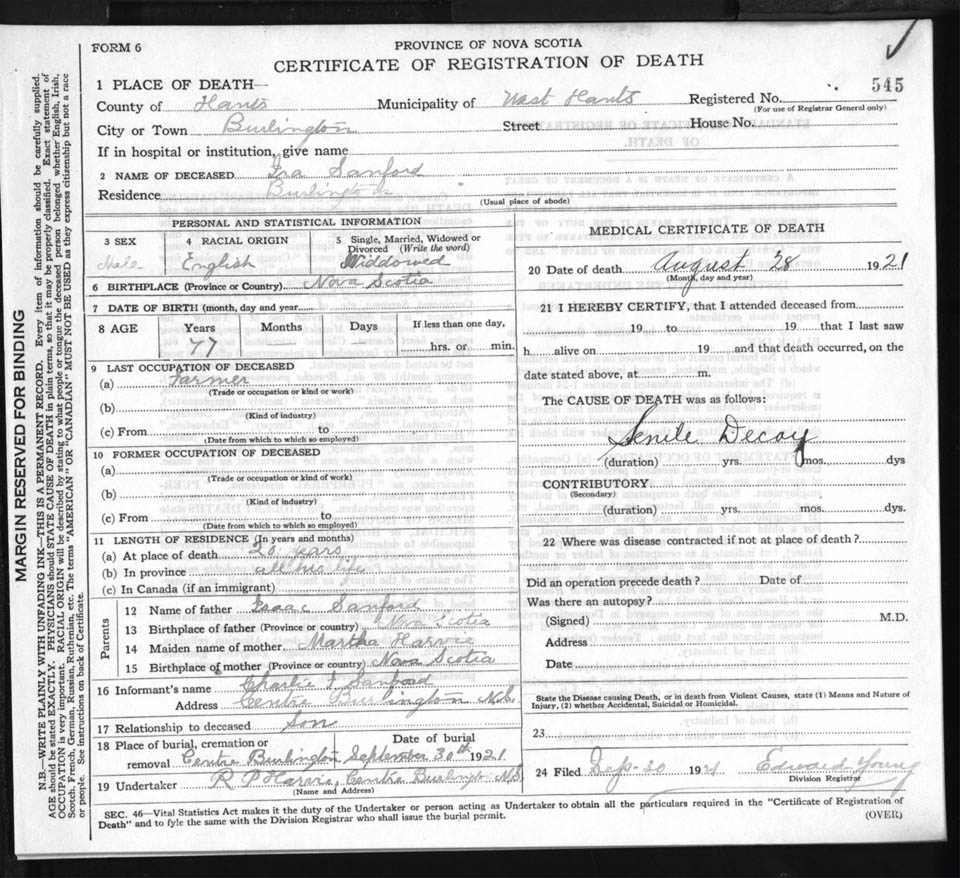 FORM 6
PROVINCE OF NOVA SCOTIA
CERTIFICATE OF REGISTRATION OF DEATH
545
1 PLACE OF DEATH—
County of Hants Municipality of West Hants Registered No.
(For use of Registrar General only)
City or Town Burlington Street House No.
If in hospital or institution, give name
2 NAME OF DECEASED Ira Sanford
Residence Burlington
(Usual place of abode)
PERSONAL AND STATISTICAL INFORMATION
3 SEX 4 RACIAL ORIGIN 5 Single, Married, Widowed or Divorced (Write the word)
Male English Widdowed
6 BIRTHPLACE (Province or Country) Nova Scotia
7 DATE OF BIRTH (month, day and year
8 AGE Years Months Days If less than one day,
77 hrs. or min.
9 LAST OCCUPATION OF DECEASED
(a) Farmer
(Trade or occupation or kind or work)
(b)
(Kind of industry)
(c) From to
(Date from which to which so employed)
10 FORMER OCCUPATION OF DECEASED
(a)
(Trade or occupation or kind or work)
(b)
(Kind of industry)
(c) From to
(Date from which to which so employed)
11 LENGTH OF RESIDENCE (In years and months)
(a) At place of death 20 years
(b) In province all his life
(c) In Canada (if an immigrant)
Parents
12 Name of father Isaac Sanford
13 Birthplace of father (Province or country) Nova Scotia
14 Maiden name of mother Martha Harvie
15 Birthplace of mother (Province or country) Nova Scotia
16 Informant's name Charlie Sanford
Address Centre Burlington N.S.
17 Relationship to deceased Son
18 Place of burial, cremation or removal Centre Burlington Date of burial September 30th 1921
19 Undertaker R P Harvie, Centre Burlington N.S.
(Name and Address)
MEDICAL CERTIFICATE OF DEATH
20 Date of death August 28 1921
(Month, day and year)
21 I HEREBY CERTIFY, that I attended deceased from
19 to 19 that I last saw
h alive on 19 and that death occurred, on the
date stated above, at m.
The CAUSE OF DEATH was as follows:
Senile Decay
(duration) yrs. mos. dys
CONTRIBUTORY
(Secondary)
(duration) yrs. mos. dys.
22 Where was disease contracted if not at place of death?
Did an operation precede death? Date of
Was there an autopsy?
(Signed) M.D.
Address
Date
State the Disease causing Death, or in death from Violent Causes, state (1) Means and Nature of
Injury, (2) whether Accidental, Suicidal or Homicidal.
23
24 Filed Sep 30 1921 Edward Young
Division Registrar
SEC. 46—Vital Statistics Act makes it the duty of the Undertaker or person acting as Undertaker to obtain all the particulars required in the "Certificate of Registration of
Death" and to fyle the same with the Division Registrar who shall issue the burial permit.
(OVER)
MARGIN RESERVED FOR BINDING
N.B.—WRITE PLAINLY WITH UNFADING INK—THIS IS A PERMANENT RECORD. Every item of information should be carefully supplied.
AGE should be stated EXACTLY. PHYSICIANS should STATE CAUSE OF DEATH in plain terms, so that it may be properly classified. Exact statement of
OCCUPATION is very important. RACIAL ORIGIN will be described by stating to what people or tongue the deceased person belonged whether English, Irish,
Scotch, French, German, Russian, Ruthenian, etc. The terms "AMERICAN" OR "CANADIAN" MUST NOT BE USED as they express citizenship but not a race
or people. See instructions on back of Certificate.